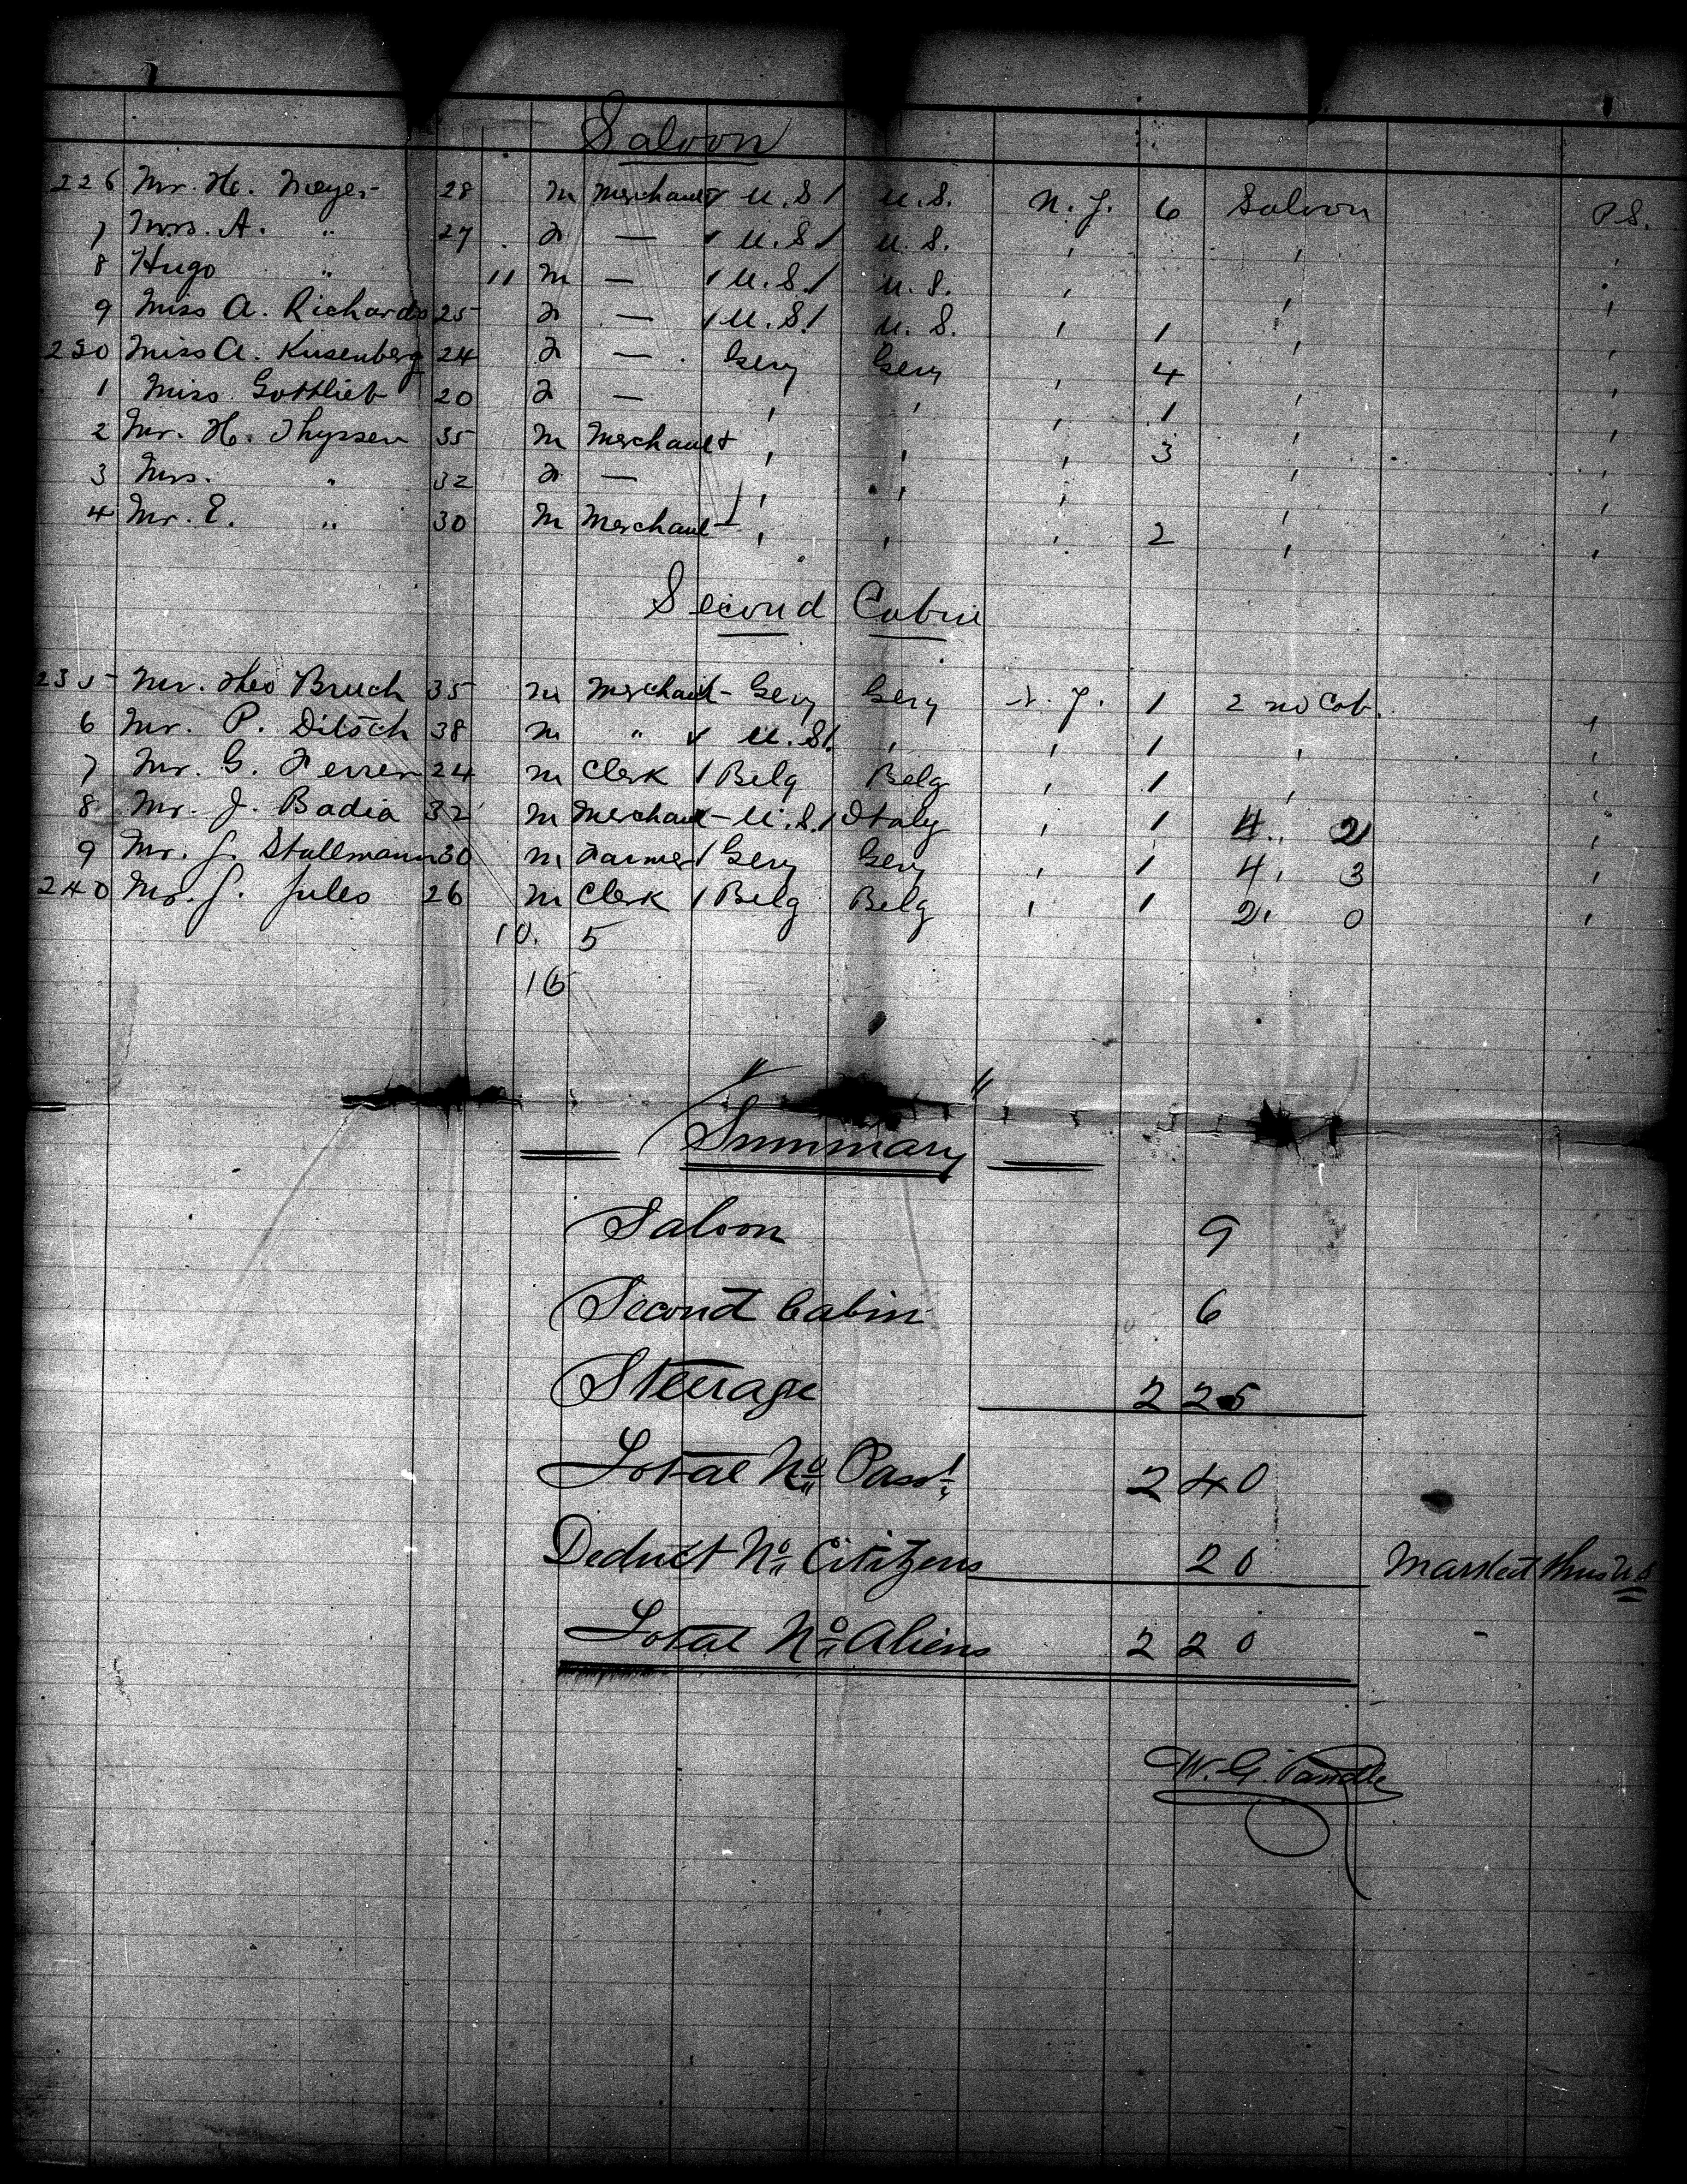 Saloon
226 Mr. H. Meyer 28 m Merchant U.S. U.S. N.Y. 6 Saloon P.S.
7 Mrs. A. " 27 F — U.S. U.S. , , ,
8 Hugo " 11 m — U.S. U.S. , , ,
9 Miss A. Richards 25 F — U.S. U.S. , 1 , ,
230 Miss A. Kusenberg 24 F — Gery Gery , 4 , ,
1 Miss Gottlieb 20 F — , , , 1 , ,
2 Mr. H. Thyssen 35 m Merchant , , , 3 , ,
3 Mrs. " 32 F — , , , , ,
4 Mr. E. " 30 m Merchant , , , 2 , ,
Second Cabin
235 Mr. Theo Bruch 35 m Merchant Gery Gery N.Y. 1 2nd Cab. ,
6 Mr. P. Ditsch 38 m " U.S. , , 1 , ,
7 Mr. G. Ferrer 24 m Clerk Belg Belg , 1 , ,
8 Mr. J. Badia 32 m Merchant U.S. Italy , 1 4. 2 ,
9 Mr. J. Stallmann 30 m Farmer Gery Gery , 1 4. 3 ,
240 Mr. J. Jules 26 m Clerk Belg Belg , 1 2. 0 ,
10. 5
15
"Summary"
Saloon 9
Second Cabin 6
Steerage 225
Total No. Passt. 240
Deduct No. Citizens 20 Marked thus U.S
Total No. Aliens 220
W. G.